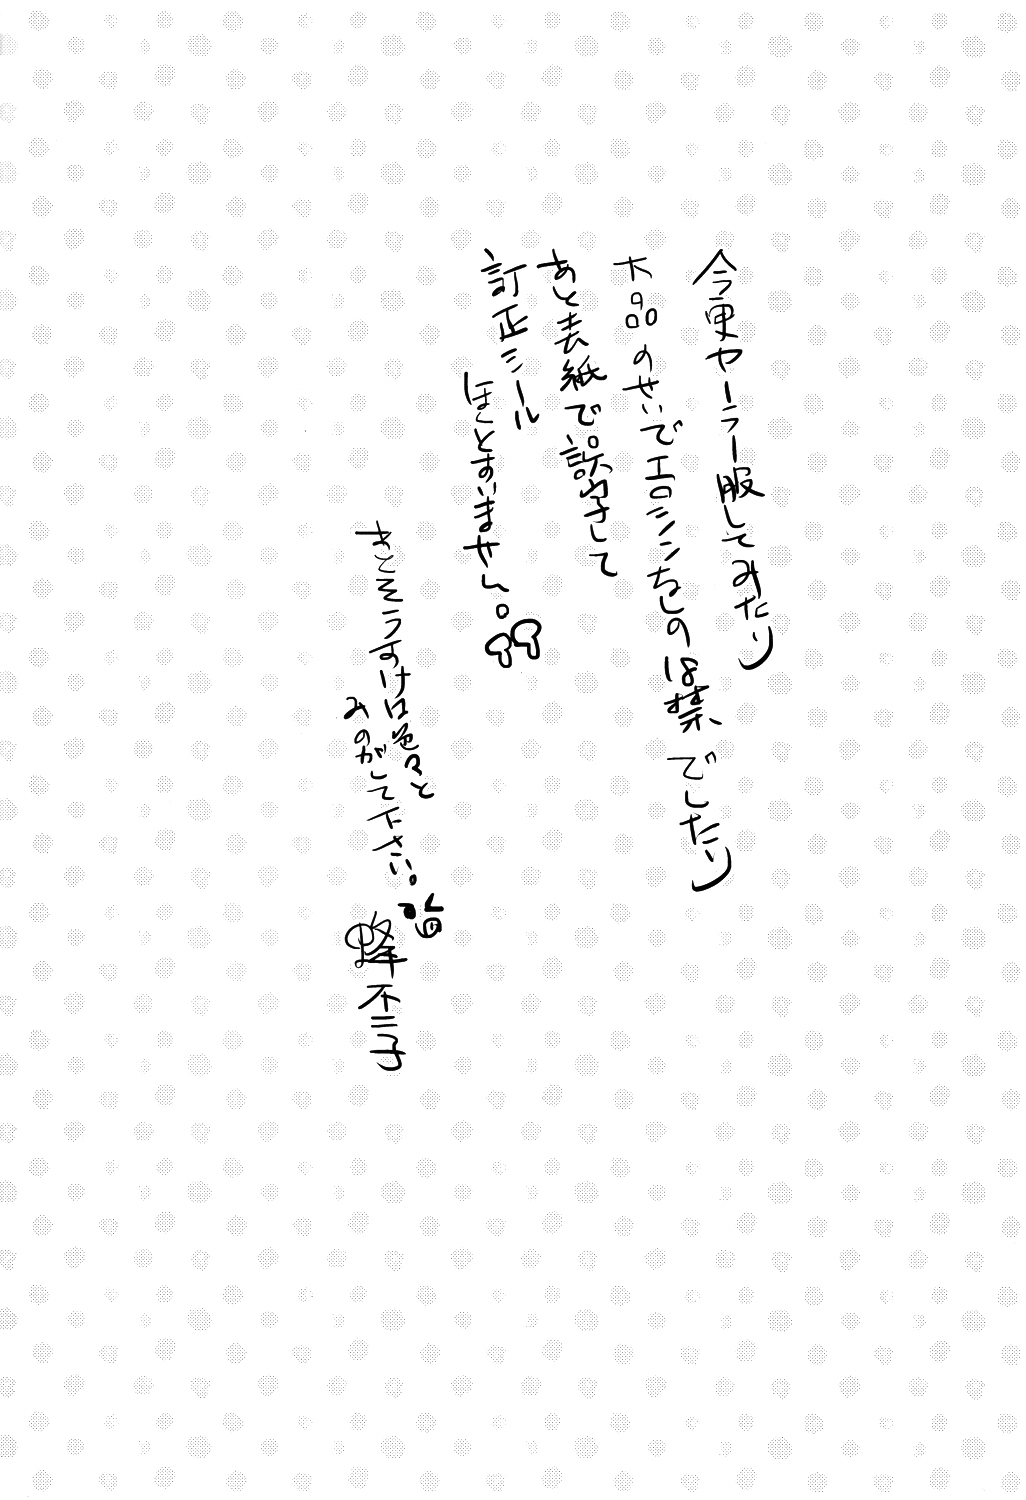 今更セーラー服してみたり
のせいでエロシーンなしのは禁でしたり
あと表紙で誤字して
訂正シール
ほんとすいません。
あとそうすけは色々と
みのがして下さい。
蜂不二子